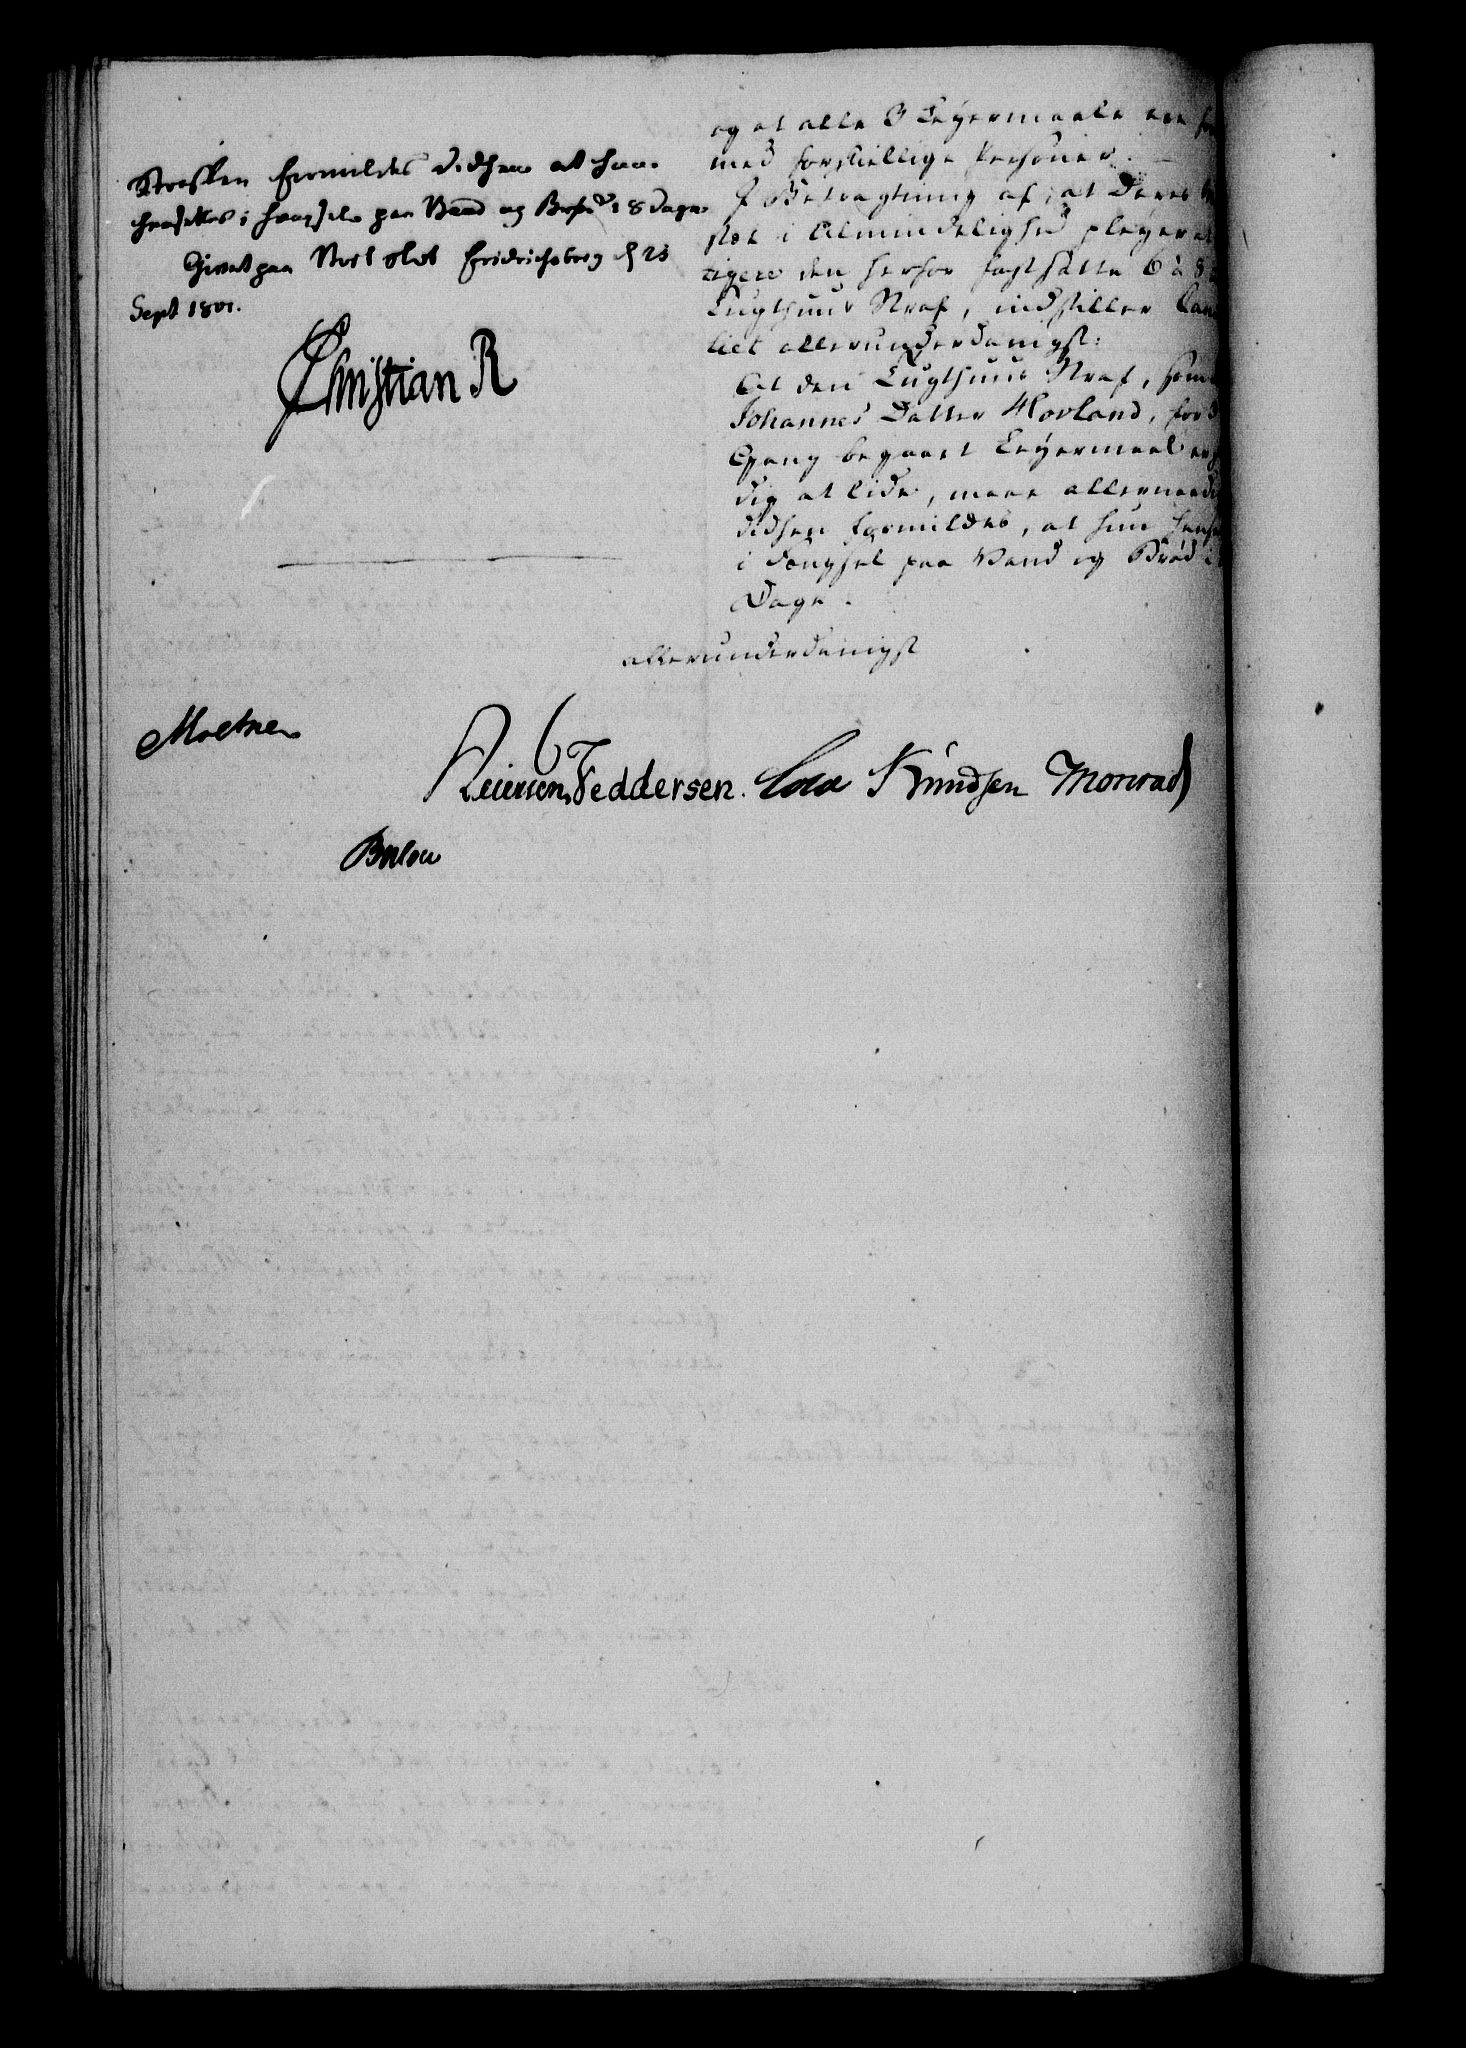 Straffen formildes didhen at hun
hensettes i Fængsel paa Vand og Brød i 8 Dage.
Givet paa Vort Slot Friderichsberg d 23
Sept 1801.
Christian R
og at alle 3 Leyermaale ere
med forskiellige Personer.
I Betragtning af, at Deres
stæt i Almindelighed pleyer at
den herfor fastsatte 6 à 8
Tugthuus Straf, indstiller Can
liet allerunderdanigst:
At den Tugthuus Straf, som
Johannes Datter Hovland, for
Gang begaaet Leyermaal er
dig at lide, maae allernaad
didhen formildes, at hun hens
i Fængsel paa Vand og Brød i
Dage.
allerunderdanigst
Moltke
Reiersen, Feddersen. Cold Knudsen Monrad
Bülow